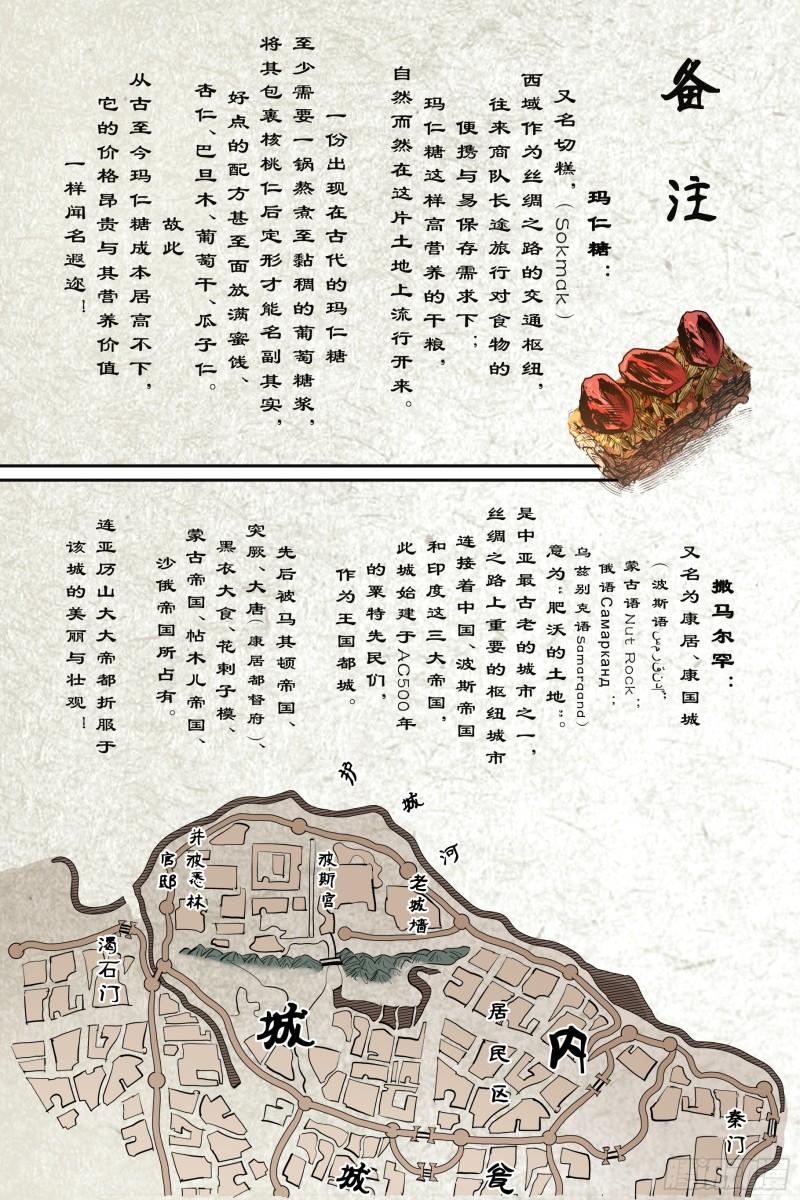 备注
玛仁糖：
又名切糕，（Sokmak）
西域作为丝绸之路的交通枢纽，
往来商队长途旅行对食物的
便携与易保存需求下；
玛仁糖这样高营养的干粮，
自然而然在这片土地上流行开来。
一份出现在古代的玛仁糖
至少需要一锅熬煮至黏稠的葡萄糖浆，
将其包裹核桃仁后定形才能名副其实，
好点的配方甚至面放满蜜饯、
杏仁、巴旦木、葡萄干、瓜子仁。
故此
从古至今玛仁糖成本居高不下，
它的价格昂贵与其营养价值
一样闻名遐迩！
撒马尔罕：
又名为康居、康国城
（波斯语
蒙古语Nut Rock；
俄语Самарканд；
乌兹别克语Samarqand）
意为：“肥沃的土地”。
是中亚最古老的城市之一，
丝绸之路上重要的枢纽城市
连接着中国、波斯帝国
和印度这三大帝国，
此城始建于AC500年
的粟特先民们，
作为王国都城。
先后被马其顿帝国、
突厥、大唐（康居都督府）、
黑衣大食、花剌子模、
蒙古帝国、帖木儿帝国、
沙俄帝国所占有。
连亚历山大大帝都折服于
该城的美丽与壮观！
护城河
并波悉林
官邸
波斯宫
老城墙
渴石门
城内
居民区
秦门
城瓮